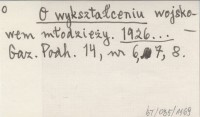 O wykształceniu wojsko-
wem młodzieży. 1926...
Gaz. Podh. 14, nr 6, 7, 8.